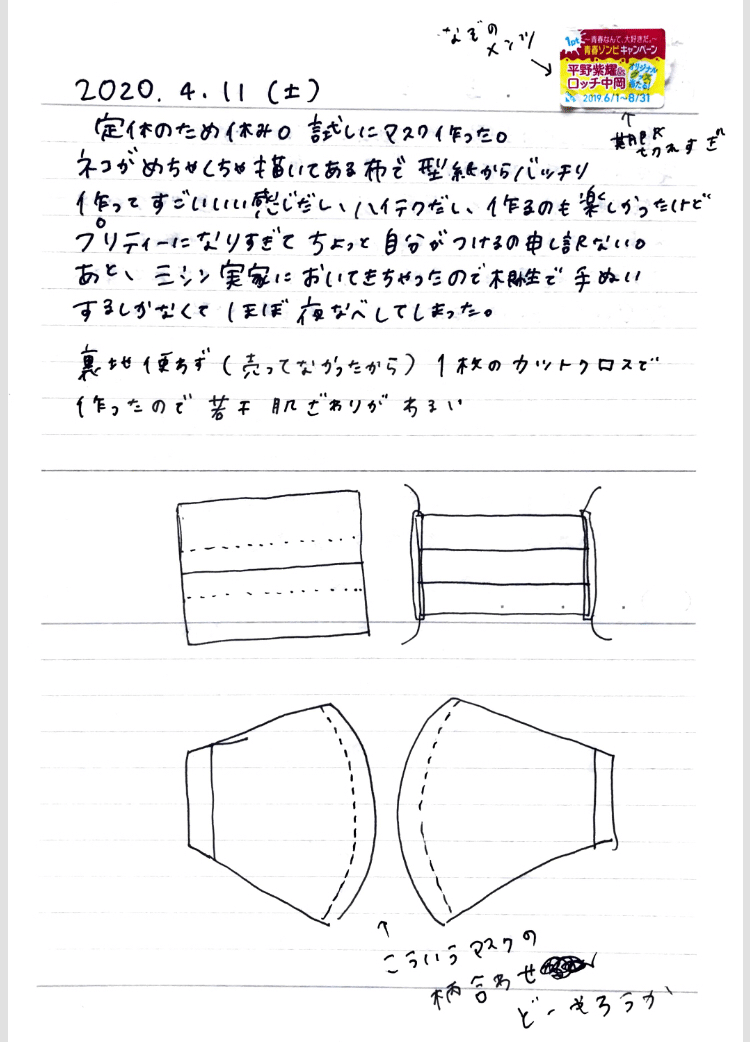 なぞの
メンツ
1pt
～青春なんて、大好きだ。～
青春ゾンビキャンペーン
平野紫耀&
ロッチ中岡
オリジナル
グッズ
当たる!
2019.6/1〜8/31
期限
切れすぎ
2020. 4. 11 (土)
定休のため休み。試しにマスク作った。
ネコがめちゃくちゃ描いてある布で型紙からバッチリ
作ってすごいいい感じだし、ハイテクだし、作るのも楽しかったけど
プリティーになりすぎてちょっと自分がつけるの申し訳ない。
あと、ミシン実家においてきちゃったので根性で手ぬい
するしかなくてほぼ夜なべしてしまった。
裏地使わず(売ってなかったから)1枚のカットクロスで
作ったので若干肌ざわりがわるい
こういうマスクの
柄合わせ
どーやろうか